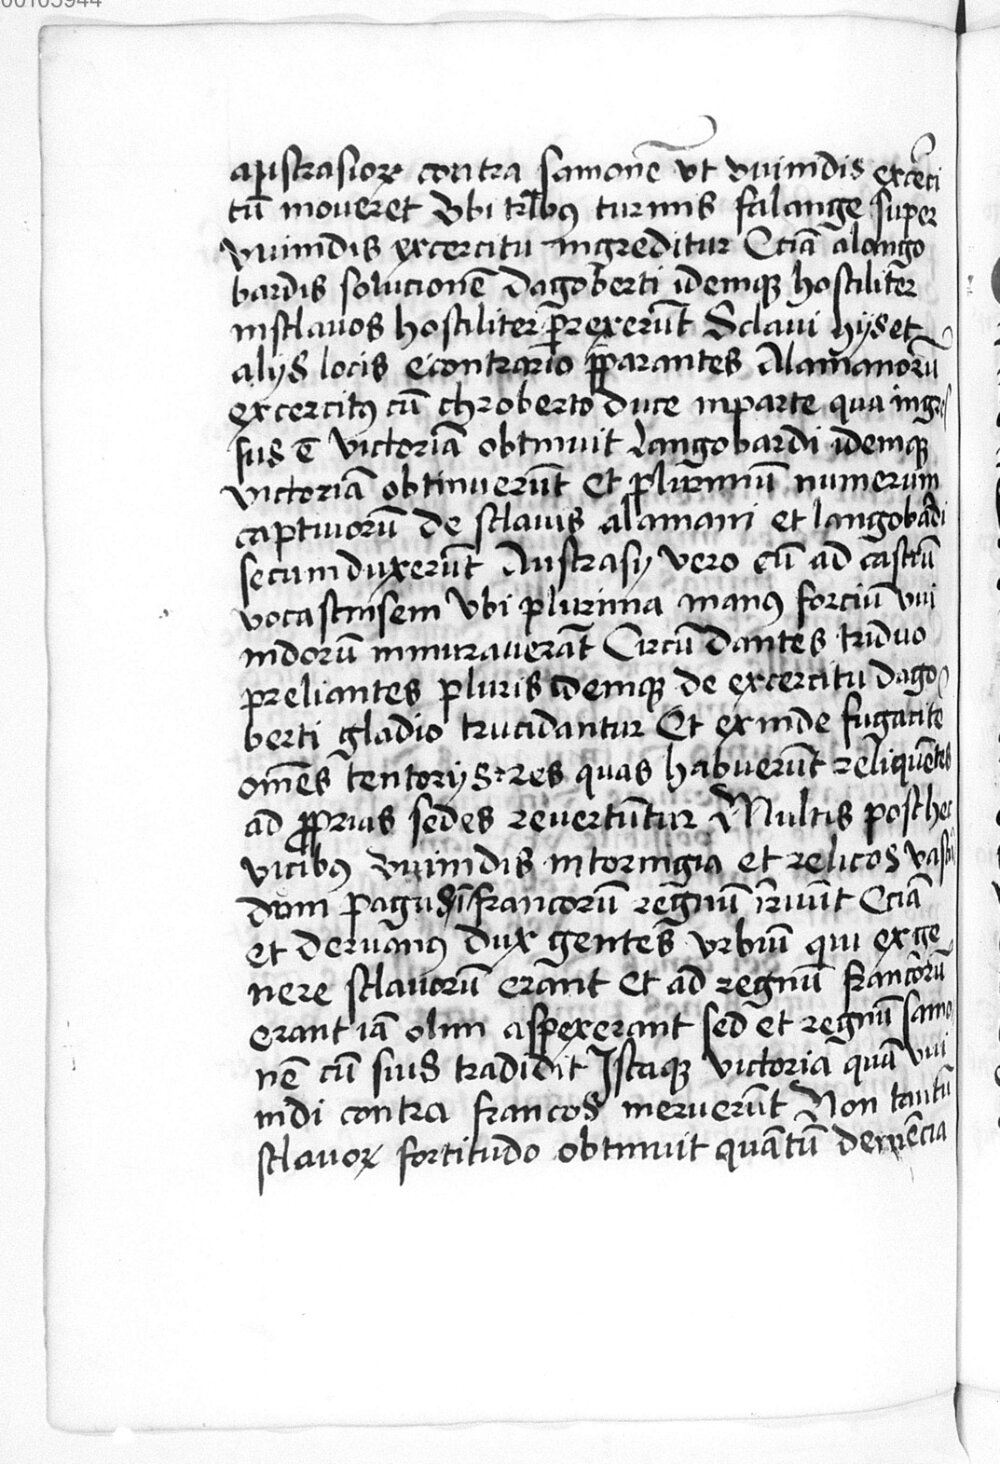 00105944
apistrasiorꝝ contra samonē vt vuinidis excerci
tū moveret Vbi tribꝰ turmis falange super
vuinidis excercitu ingreditur Eciā alongo
bardis solucionē Dagoberti idemqꝫ hostiliter
insclavos hostiliter ꝑrexerūt Sclaui hijs et
alijs locis econtrario p̄parantes Alamanorū
excercitꝰ cū chroberto duce inparte qua ingres
sus ē victoriā obtinuit Langobardi idemqꝫ
victoriā obtinuerūt et plurimū numerum
captivorū de sclauis alamani et langobardi
secum duxerūt Austrasij vero cū ad castrū
vocastinsem vbi plurima manꝰ forciū vui
nidorū inmuraverāt Circū dantes triduo
preliantes pluris idemqꝫ de excercitu dago
berti gladio trucidantur Et exinde fugacite
om̄es tentorijs ⁊ res quas habuerūt reliquētes
ad ꝓprias sedes revertūtur Multis post hec
vicibꝰ vuinidis intoringia et relicos vasta
dum pagus ī francorū regnū irruūt Eciā
et dervanꝰ dux gentes vrbiū qui ex ge
nere sclavorū erant et ad regnū francorū
erant iā olim aspexerant sed et regnū samo
nē cū suis tradidit Istaqꝫ victoria quā vui
nidi contra francos meruerūt Non tantū
sclavorꝝ fortitudo obtinuit quātū